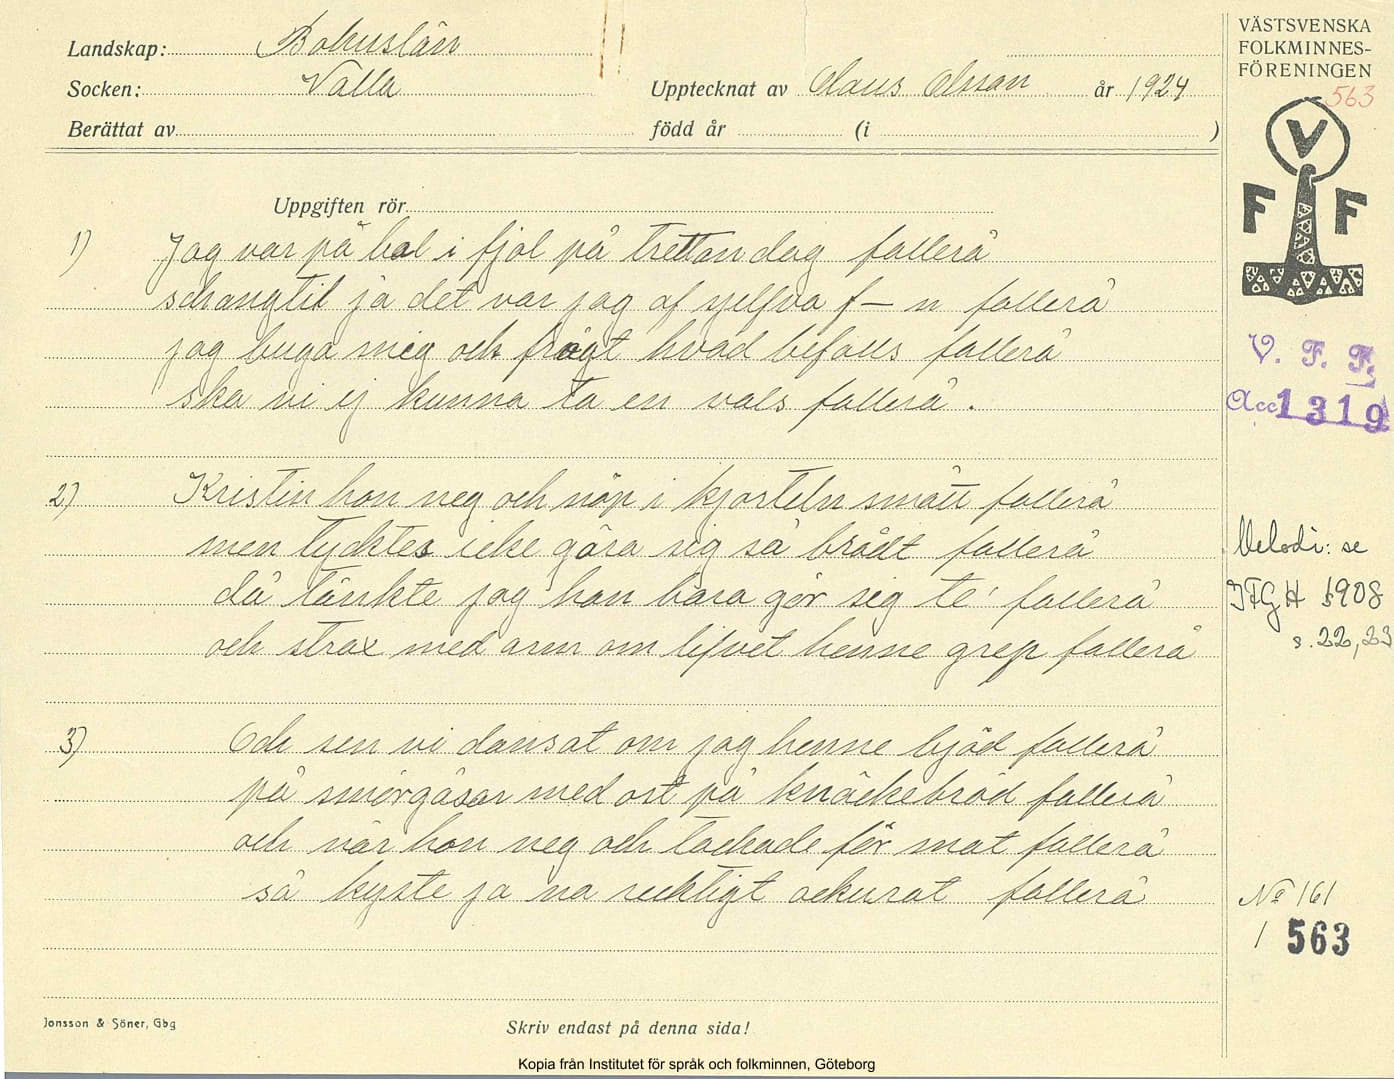 Landskap: Bohuslän
Socken: Valla
Upptecknat av Claus Olsson år 1924
Berättat av
född år (i )
Uppgiften rör
1) Jag var på bal i fjol på trettondag fallerá
schangtil ja det var jag af sjelfva f–n fallerá
jag buga mig och frågt hvad befalls fallerá
ska vi ej kunna ta en vals fallerá.
2) Kristin hon neg och nöp i kjorteln smått fallerá
men tycktes icke göra sig så brådt fallerá
då tänkte jag hon bara gör sig te' fallerá
och strax med arm om lifvet henne grep fallerá
3) Och sen vi dansat om jag henne bjöd fallerá
på smörgåsar med ost på knäckebröd fallerá
och när hon neg och tackade för mat fallerá
så kyste ja na recktigt ackurat fallerá
Jonsson & Söner, Gbg
Skriv endast på denna sida!
Kopia från Institutet för språk och folkminnen, Göteborg
VÄSTSVENSKA
FOLKMINNES-
FÖRENINGEN
563
V
F F
V. F. F.
Acc 1319
Melodi: se
IFGH 1908
s. 22, 23
No 161
/ 563